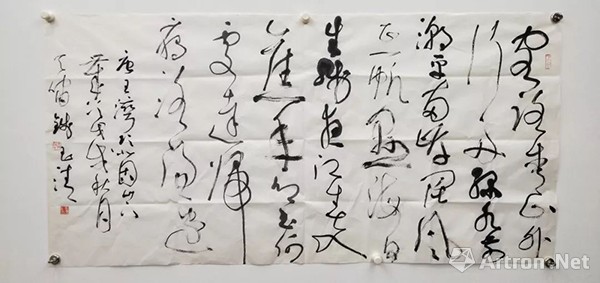 客路青山外
行舟绿水前
潮平两岸阔风
正一帆悬海日
生残夜江春入
旧年乡书何
处达归
雁洛阳边
唐王湾次北固山下
戊戌秋月
Artron.Net